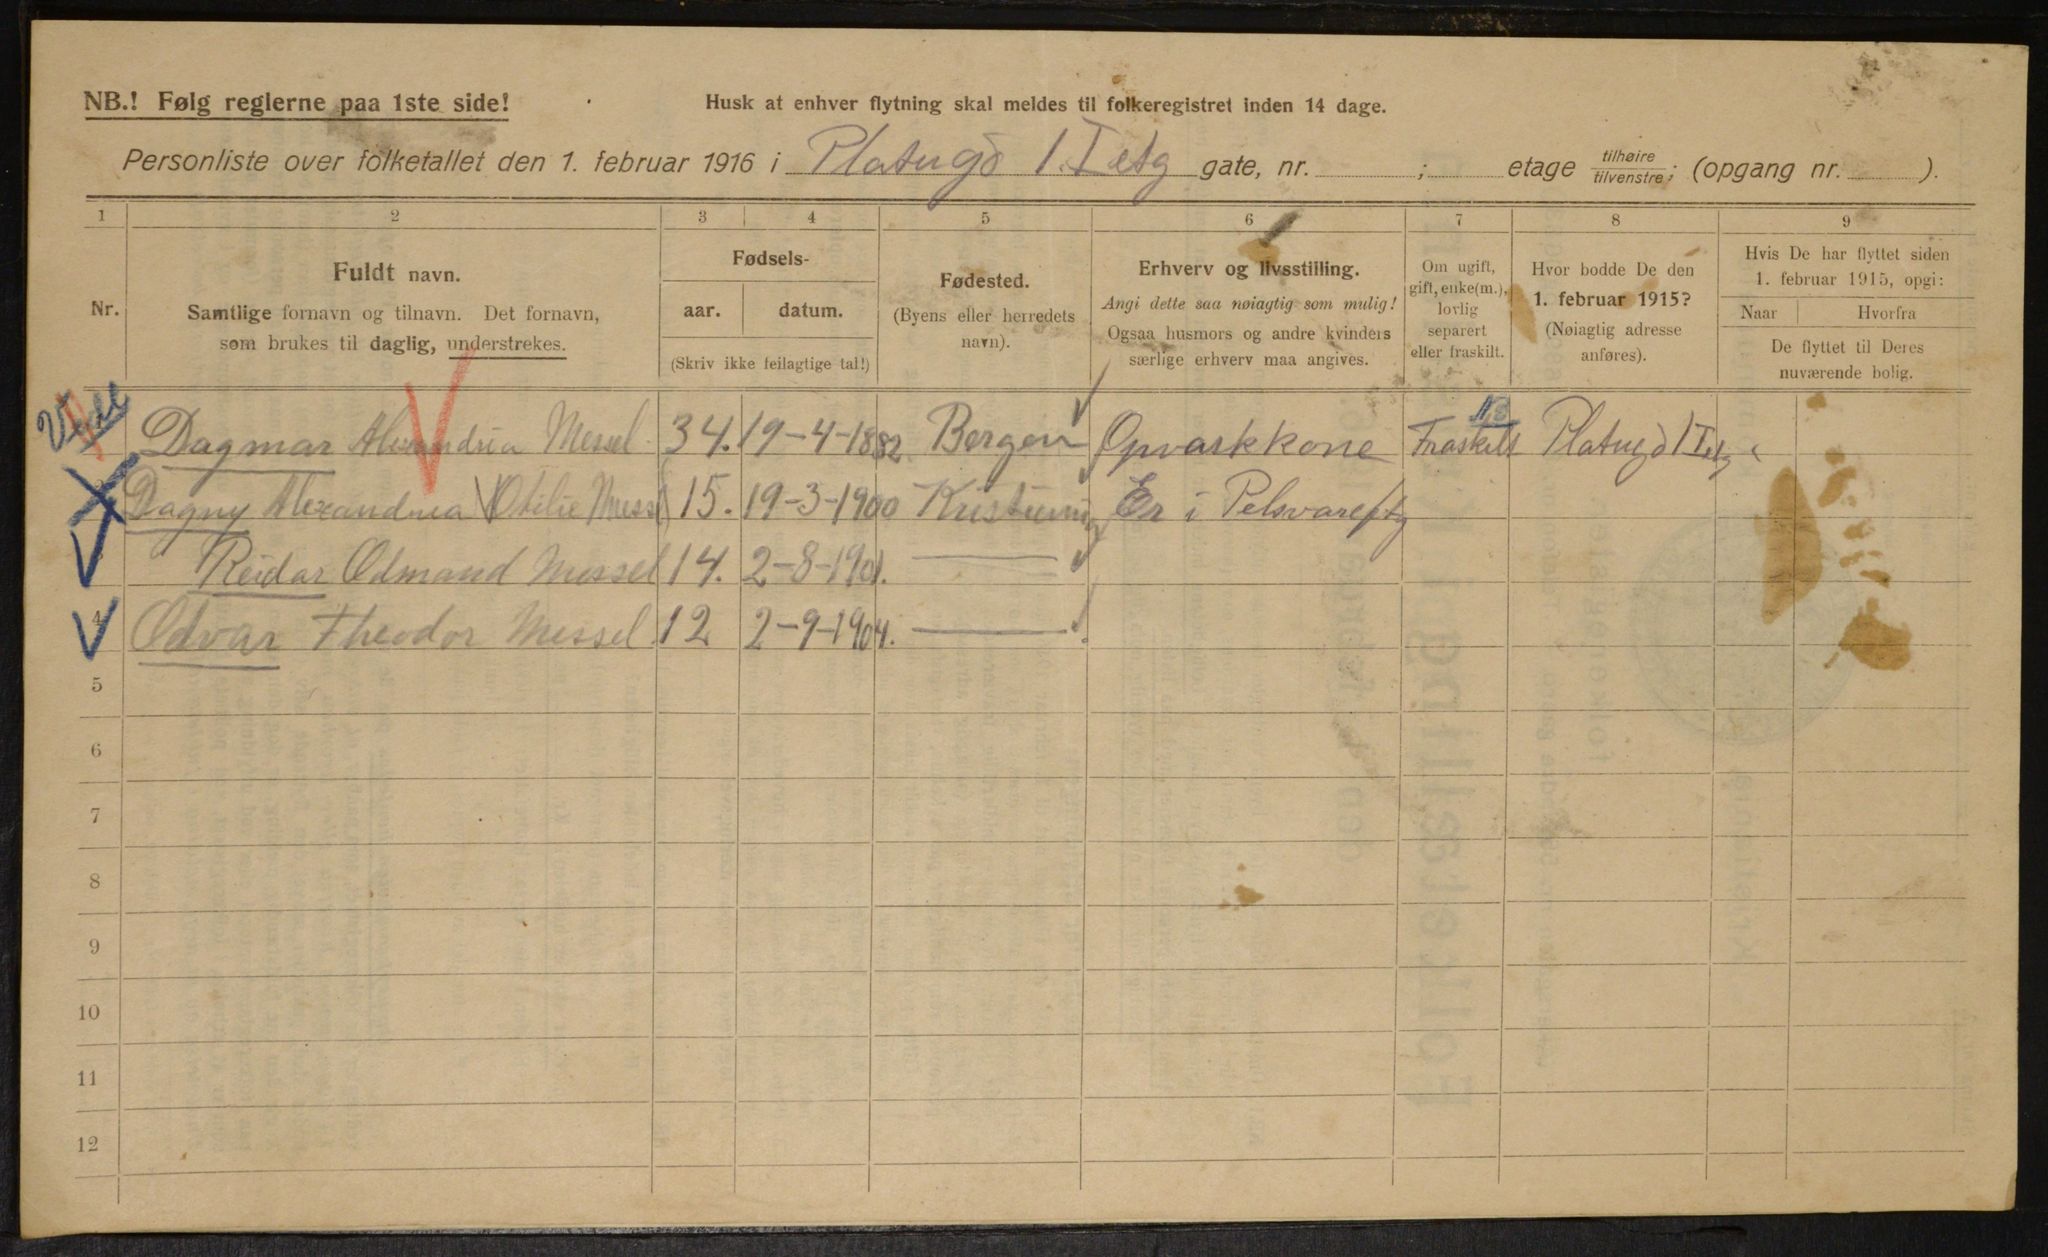 NB.! Følg reglerne paa 1ste side!
Husk at enhver flytning skal meldes til folkeregistret inden 14 dage.
Personliste over folketallet den 1. februar 1916 i Platugd 1 I etg gate, nr. ; etage tilhøire tilvenstre; (opgang nr. ).
1 2 3 4 5 6 7 8 9
Nr.
Fuldt navn.
Samtlige fornavn og tilnavn. Det fornavn,
som brukes til daglig, understrekes.
Fødsels-
aar. datum.
(Skriv ikke feilagtige tal!)
Fødested.
(Byens eller herredets
navn).
Erhverv og livsstilling.
Angi dette saa nøiagtig som mulig!
Ogsaa husmors og andre kvinders
særlige erhverv maa angives.
Om ugift,
gift, enke(m.),
lovlig
separert
eller fraskilt.
Hvor bodde De den
1. februar 1915?
(Nøiagtig adresse
anføres).
Hvis De har flyttet siden
1. februar 1915, opgi:
Naar Hvorfra
De flyttet til Deres
nuværende bolig.
Dagmar Alexandria Messel 34. 19-4-1882 Bergen Opvaskkone Fraskilt Platugd 1 I etg
Dagny Alexandria Otilie Messel 15. 19-3-1900 Er i Pelsvareftg
Reidar Odmand Messel 14. 2-8-1901.
4 Odvar Theodor Messel 12 2-9-1904.
5
6
7
8
9
10
11
12